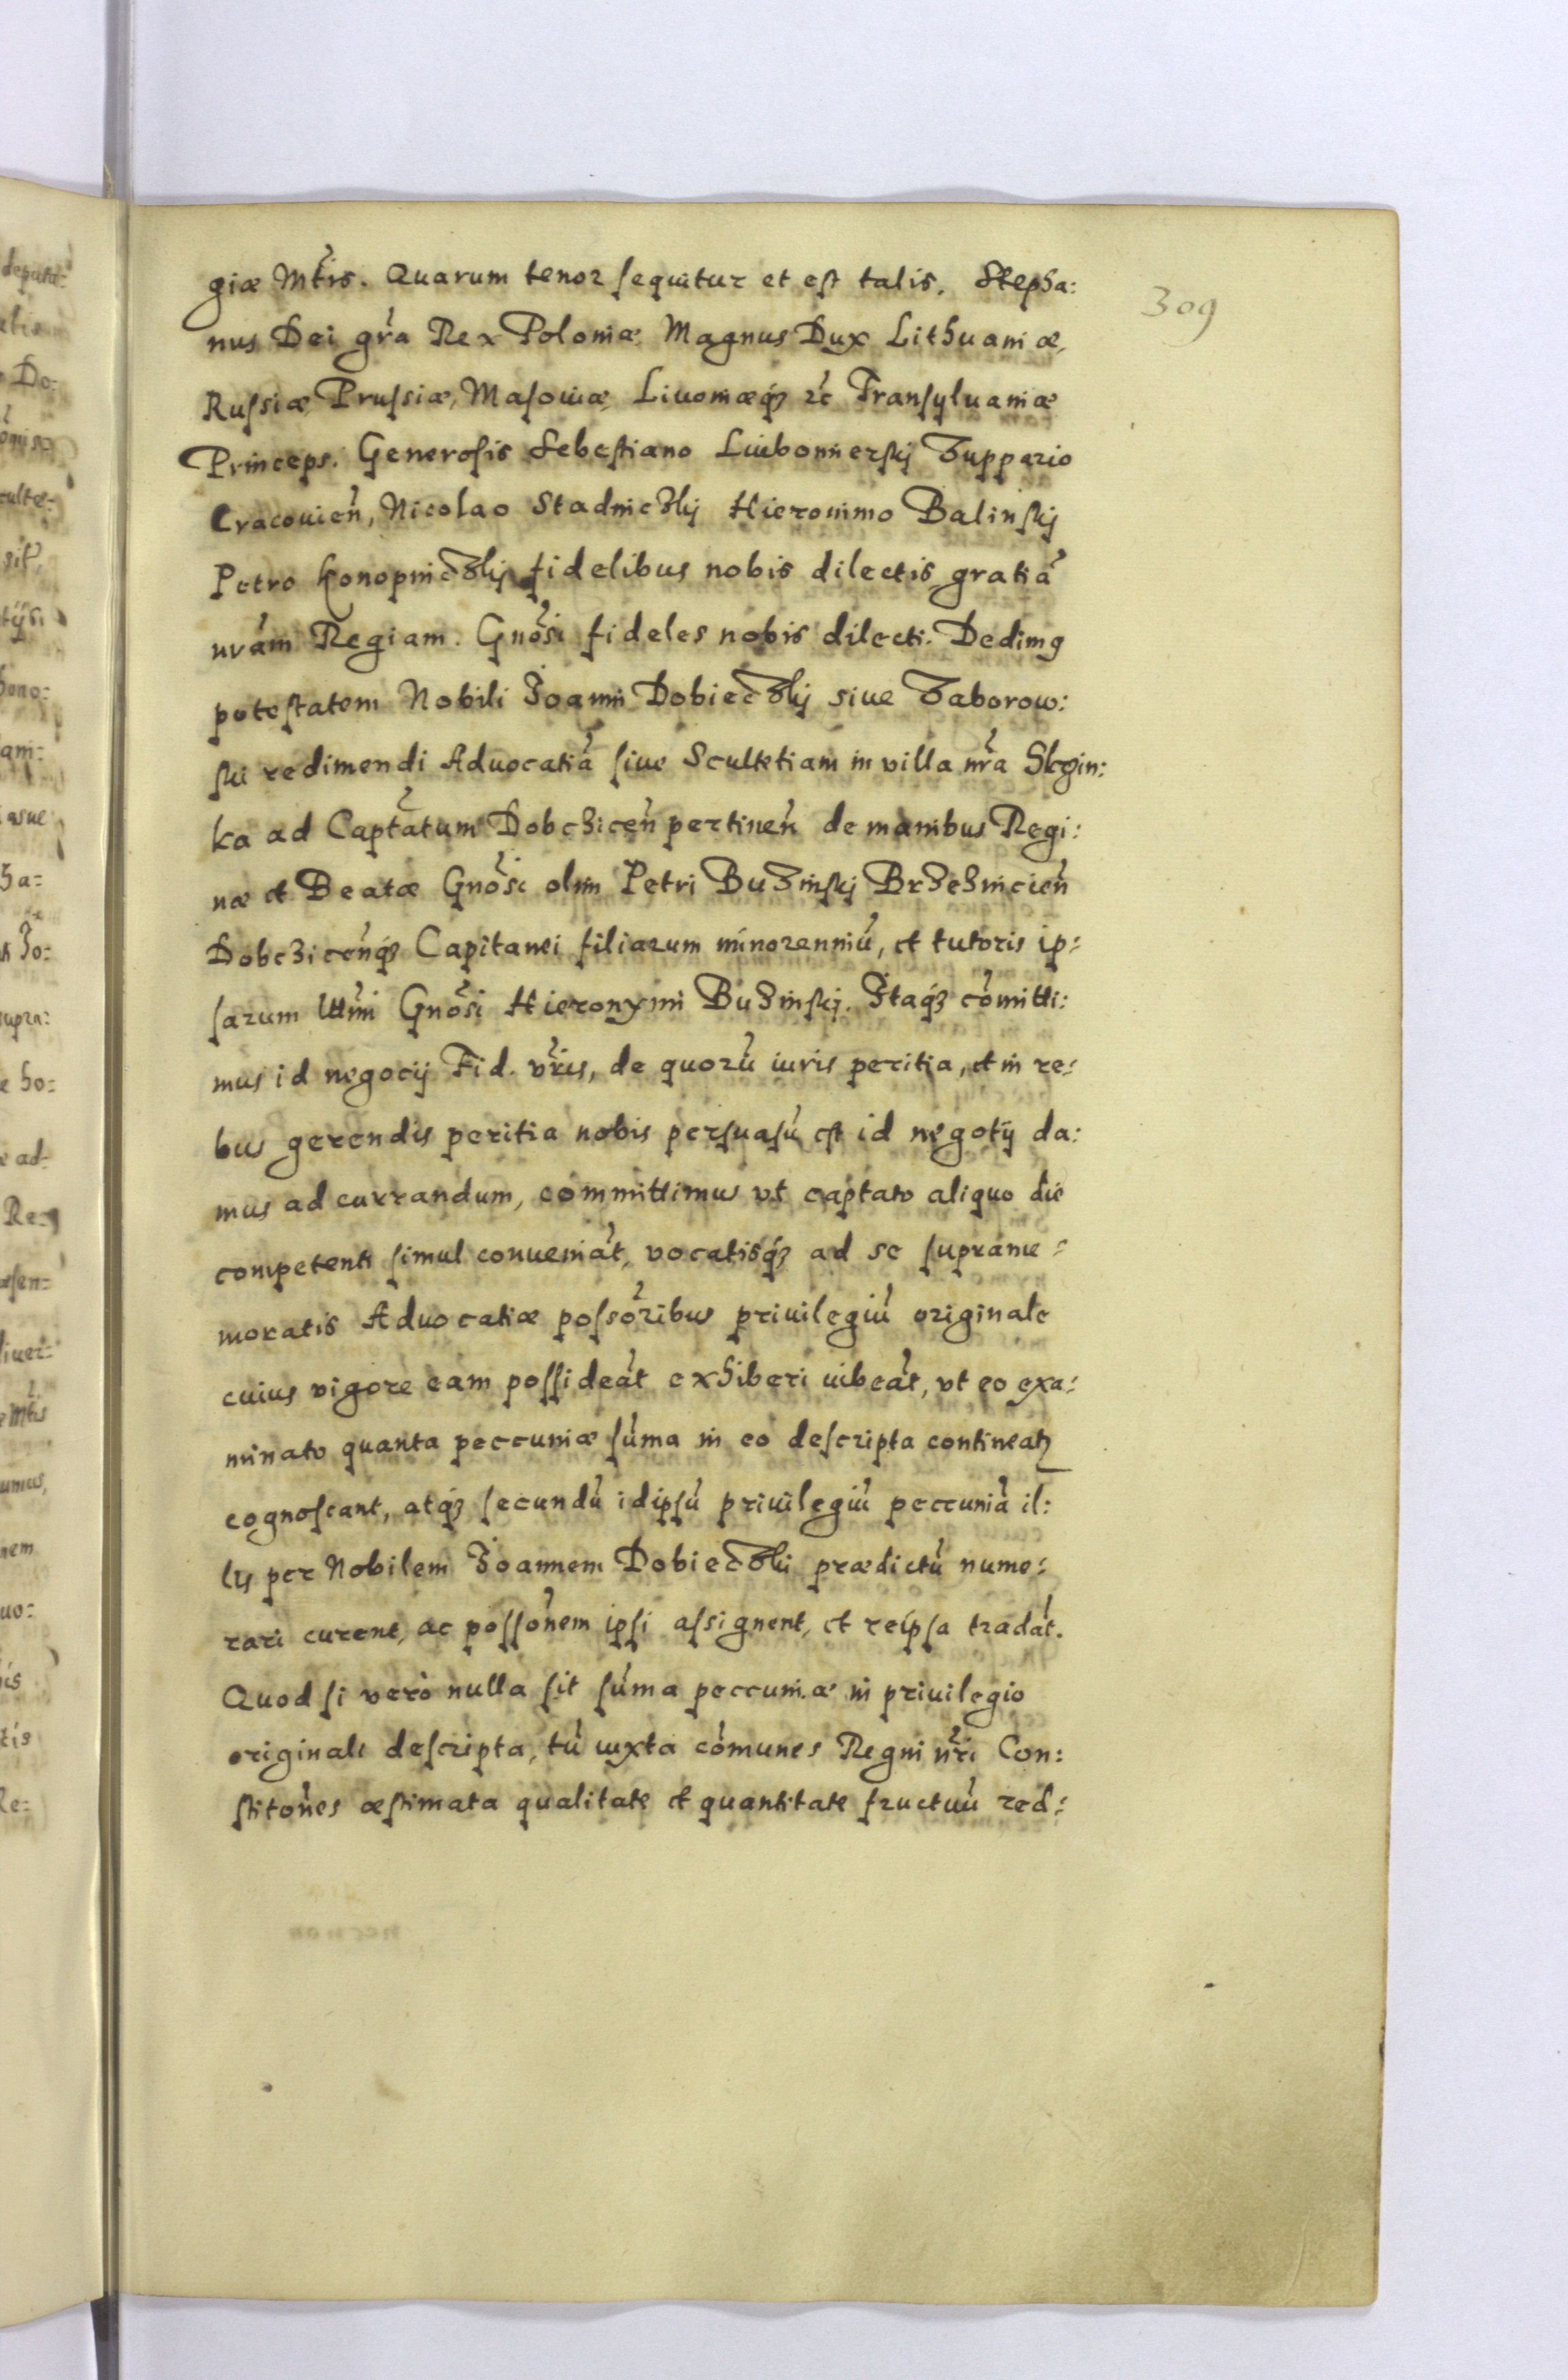 309
giæ Mtis. Quarum tenor sequitur et est talis. Stepha:
nus Dei gra Rex Poloniæ Magnus Dux Lithuaniæ,
Russiæ, Prussiæ, Masoviæ, Livoniæq3 &c Transylvaniæ
Princeps. Generosis Sebestiano Lubomierskij Zuppario
Cracovien, Nicolao Stadniczkij Hieronimo Balinskij
Petro Konopniczkij fidelibus nobis dilectis gratiā
nrām Regiam. Gnōsi fideles nobis dilecti. Dedimg
potestatem Nobili Joanni Dobieczkij sive Zaborow:
ski redimendi Advocatiā sive Scultetiam in villa nrā Skrzin:
ka ad Captātum Dobczicen pertinen de manibus Regi:
næ et Beatæ Gnōsi olim Petri Buzinskj Brzeznicien
Dobczicenq3 Capitanei filiarum minorenniū, et tutoris ip:
sarum lttimi Gnōsi Hieronymi Buzinskj. Itaq3 cōmitti:
mus id negocij Fid. vris, de quorū iuris peritia, et in re:
bus gerendis peritia nobis persuasū est id negotij da:
mus ad currandum, committimus vt captato aliquo die
competenti simul conveniāt, vocatisq3 ad se suprame:
moratis Advocatiæ possōribus privilegiū originale
cuius vigore eam possideāt exhiberi iubeāt, vt eo exa:
minato quanta peccuniæ sūma in eo descripta contineatz
cognoscant, atq3 secundū idipsū privilegiū peccuniā il:
lis per Nobilem Joannem Dobieczki prædictū nume:
rari curent, ac possōnem ipsi assignent, et reipsa tradāt.
Quod si verò nulla sit sūma peccuniæ in privilegio
originali descripta, tū iuxta cōmunes Regni nri Con:
stitōnes æstimata qualitate et quantitate fructuū red: